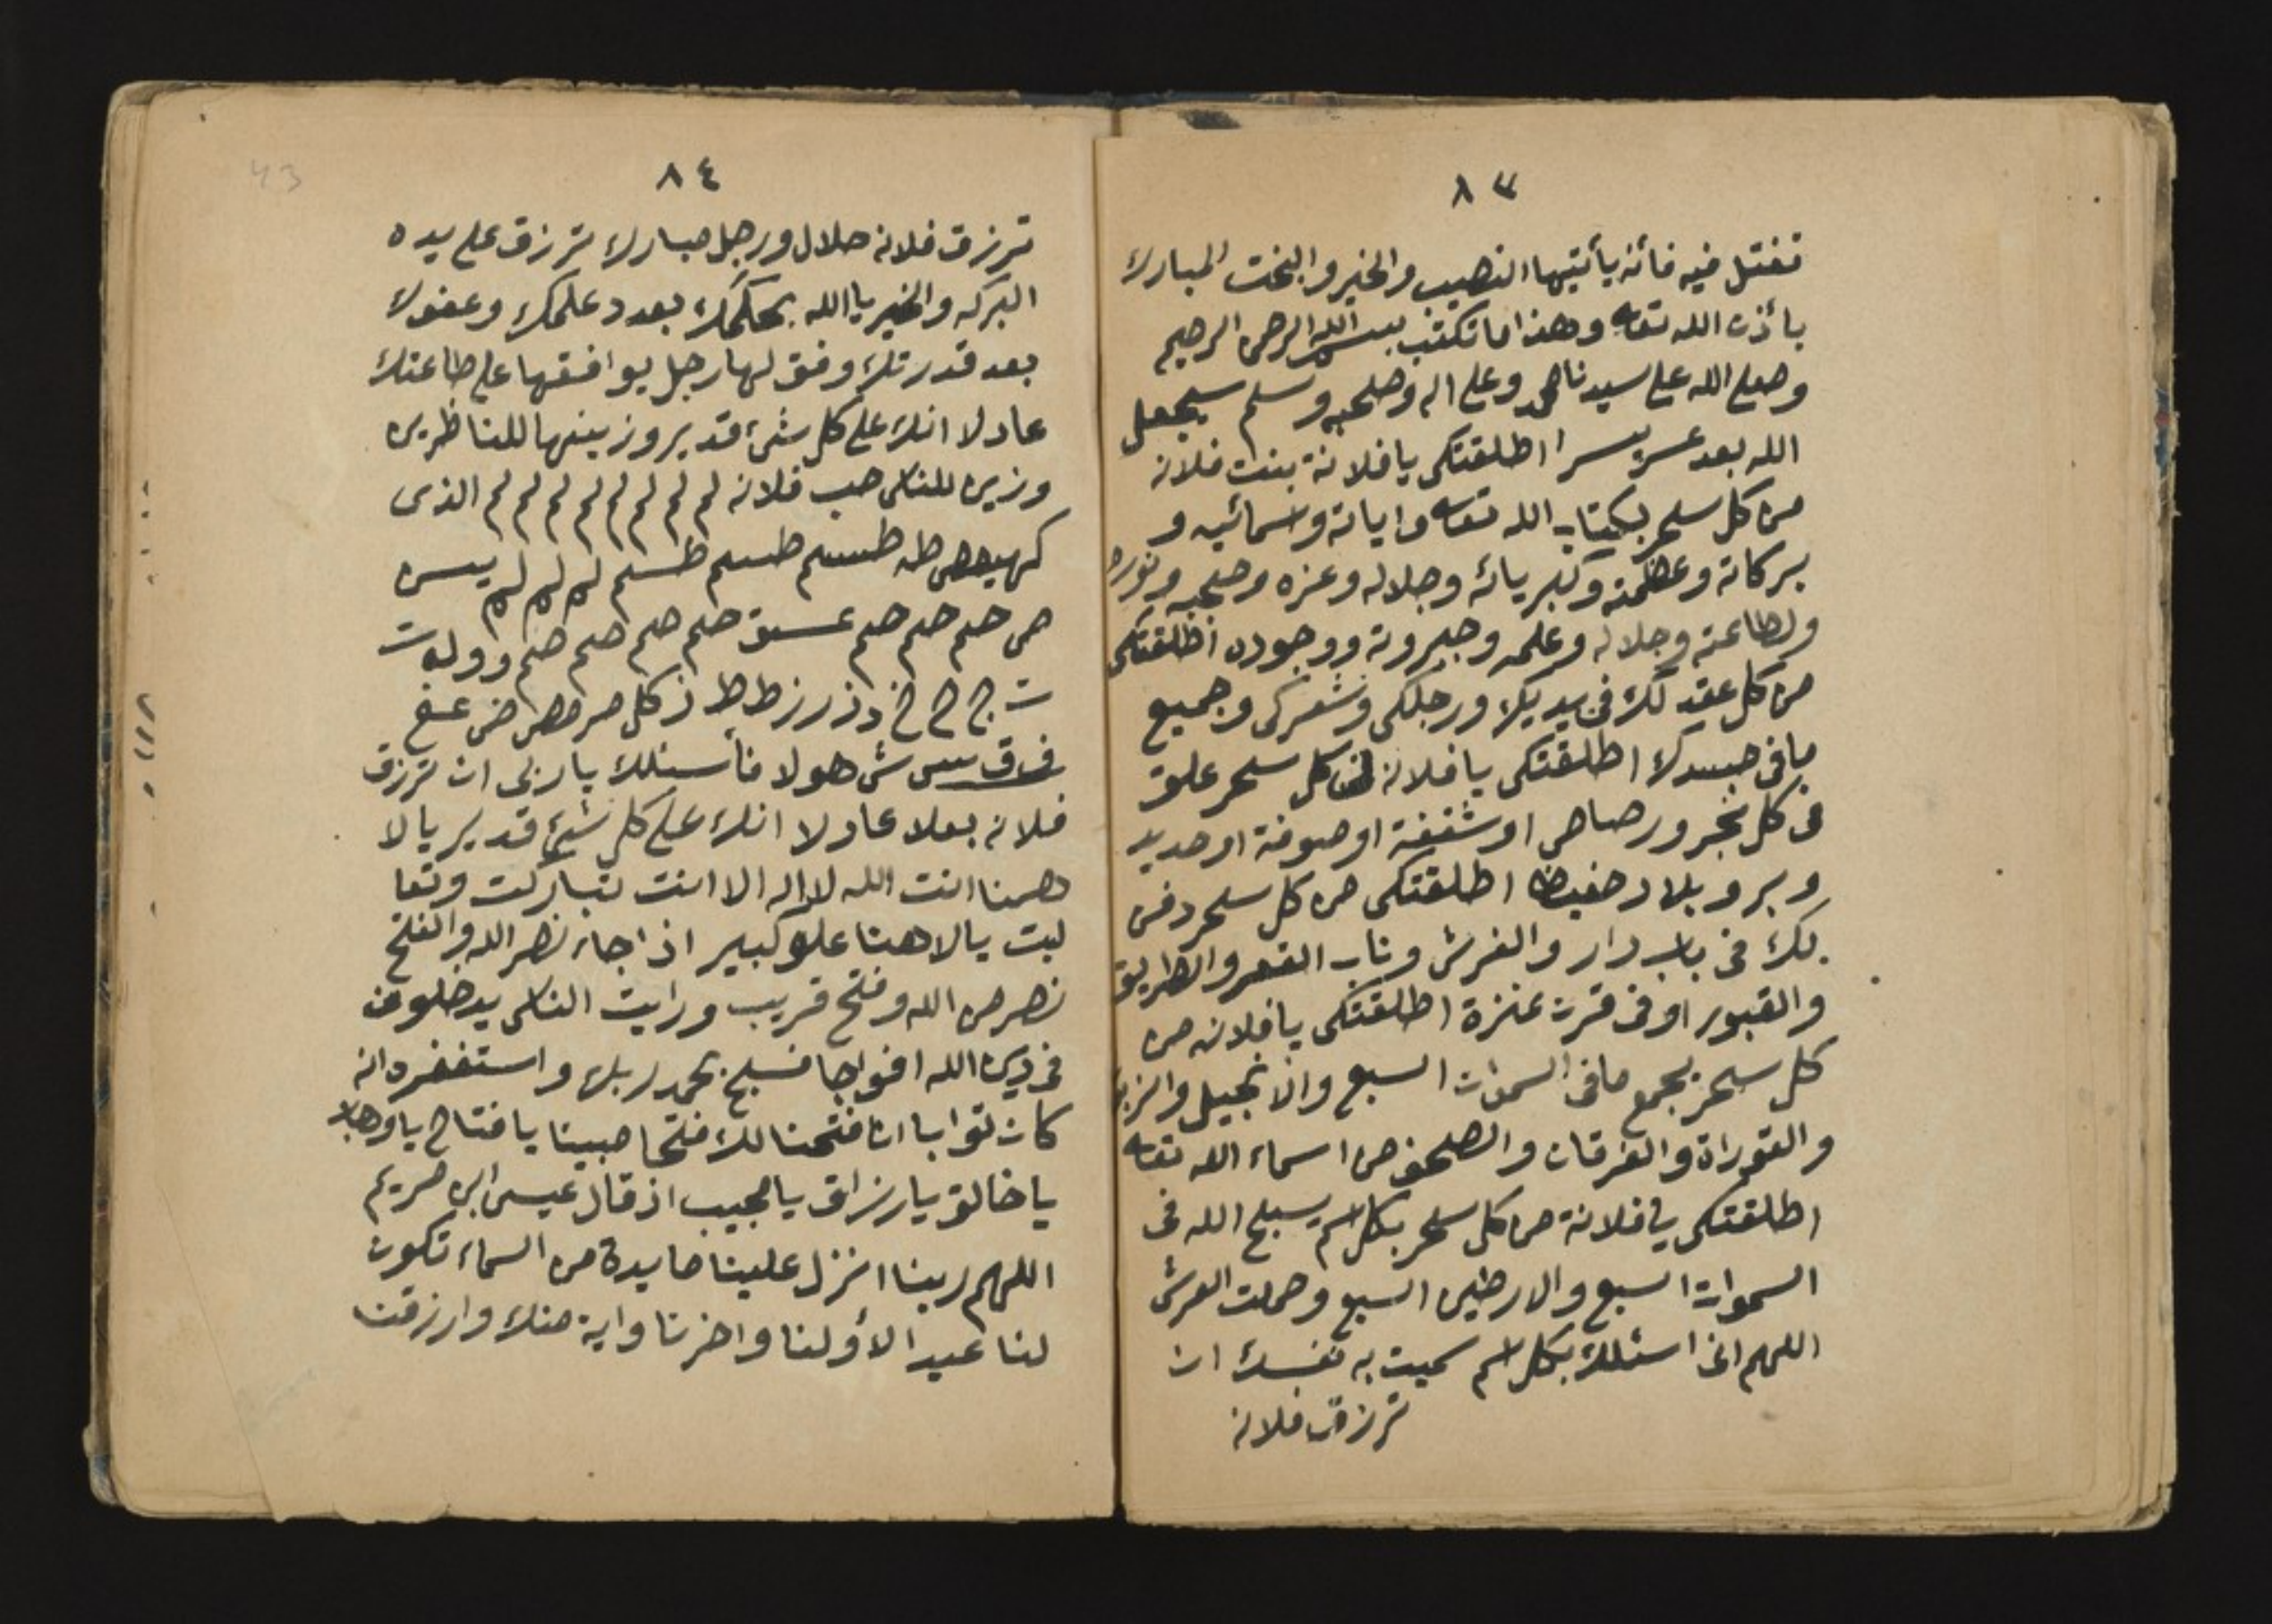 ٨٣
تغتسل فيه فأنه يأتيها النصيب والخير والبخت المبارك
بأذن الله تعا وهذا ما تكتب بسم الله الرحمن الرحيم
وصلى الله على سيدنا محمد وعلى اله وصحبه وسلم سيجعل
الله بعد عسر يسرا اطلقتكى يا فلانة بنت فلانه
من كل سحر بكتاب الله تعا واياته واسمائيه و
بركاته وعظمته وكبريائه وجلاله وعزه وصحبه ونوره
ولطاعته وجلاله وعلمه وجبروته ووجوده اطلقتكى
من كل عقد لك فى يديك ورجلكى وشعركى وجميع
ما فى جسدك اطلقتكى يا فلانه من كل سحر علق
فى كل شجر ورصاص او شقفة او صوفة او حديد
وبر وبلاد حفيظ اطلقتكى من كل سحر دفن
لك فى باب دار والفرش وباب القصر والطريق
والقبور او فى قرن عنزة اطلقتكى يا فلانه من
كل سحر بجمع ما فى السموات السبع والانجيل والزبور
والتوراة والفرقان والصحف من اسماء الله تعا
اطلقتكى يا فلانة من كل سحر بكل اسم يسبح الله فى
السموات السبع والارضين السبع وحملت العرش
اللهم انى اسئلك بكل اسم سميت به نفسك ان
ترزق فلانه
٨٤
43
ترزق فلانه حلال ورجل مبارك ترزق على يده
البركه والخير يا الله بحكمك بعدد علمك وعفوك
بعد قدرتك وفق لها رجل يوافقها على طاعتك
عادلا انك على كل شئ قدير وزينها للناظرين
وزين للناس حب فلانه لم لم لم لم لم لم لم لم الذى
كهيعص طه طسم طسم طسم لم لم لم يس
ص حم حم حم عسق حم حم حم حم وو لو ت
ث ج ح خ د ذ ر ز ط ظ ذ كل ص ص ض ع غ
ف ق س ش هو لا فأسئلك يا ربى ان ترزق
فلانه بعلا عادلا انك على كل شئ قدير يا لا
همنا انت الله لا اله الا انت تباركت وتعا
ليت يا لاهنا علو كبير اذا جاء نصر الله والفتح
نصر من الله وفتح قريب ورايت الناس يدخلون
فى دين الله افواجا فسبح بحمد ربك واستغفره انه
كان توابا انا فتحنا لك فتحا مبينا يا فتاح يا وهاب
يا خالق يا رزاق يا مجيب اذ قال عيسى ابن مريم
اللهم ربنا انزل علينا مايدة من السماء تكون
لنا عيد الأولنا واخرنا واية منك وارزقنا